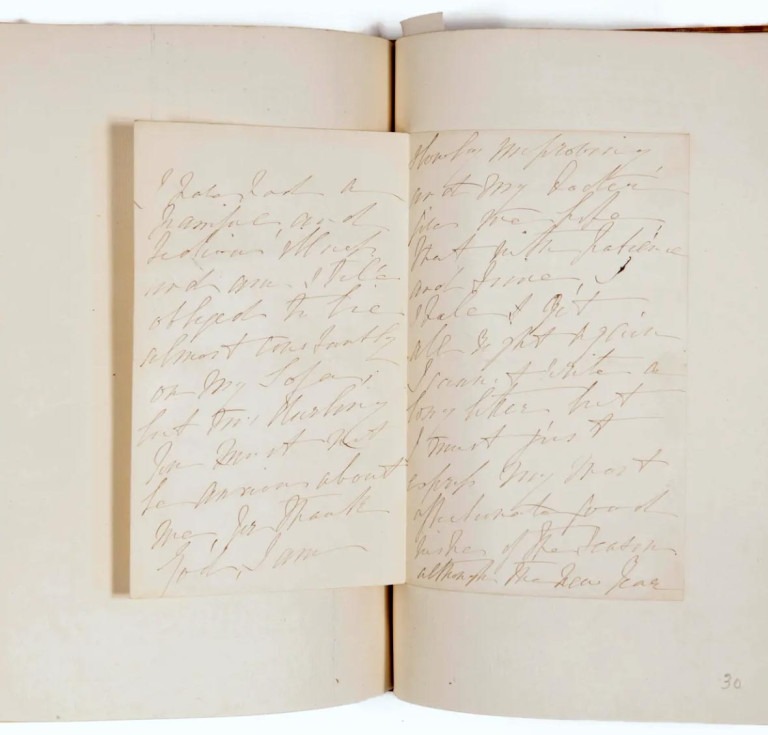 I have had a
painful and
tedious illness
and am still
obliged to lie
almost constantly
on my Sofa;
but my darling
you must not
be anxious about
me, for thank
God, I am
slowly improving
and my Doctor
me
that with patience
and time, I
shall get
all right again
I cannot write a
long letter but
I must just
express my most
affectionate good
wishes of the Season
although the New Year
30